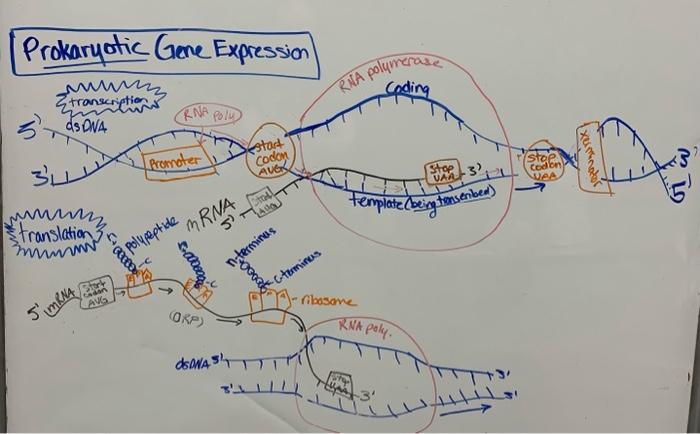 Prokaryotic Gene Expression
transcription
5'
dsDNA
3'
RNA Poly
Promoter
start
codon
AUG
RNA polymerase
Coding
Stop
UAA
3'
template (being transcribed)
stop
codon
UAA
3'
5'
mRNA
5'
Start
AUG
translation
Polypeptide
5' mRNA
Start
codon
AUG
E P A
(ORF)
n-terminus
c-terminus
E P A
ribosome
RNA poly.
dsDNA 5'
3'
3'
5'
Stop
UAA
3'